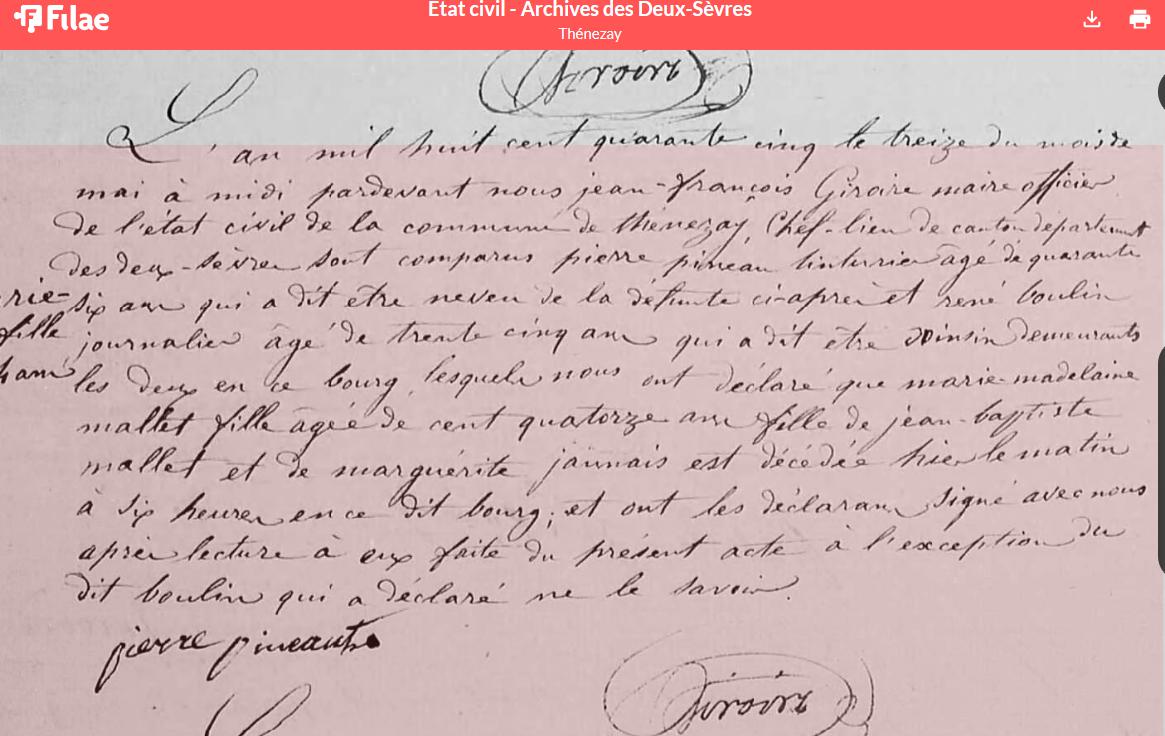 Filae
Etat civil - Archives des Deux-Sèvres
Thénezay
Giroire
L'an mil huit cent quarante cinq le treize du mois de
mai à midi pardevant nous jean-françois Giroire maire officier
de l'état civil de la commune de thénezay, Chef-lieu de canton département
des deux-sèvres sont comparus pierre pineau tinturier âgé de quarante
six ans qui a dit être neveu de la défunte ci-après et rené boulin
journalier âgé de trente cinq ans qui a dit être voinsin demeurants
les deux en ce bourg, lesquels nous ont déclaré que marie-madelaine
mallet fille âgée de cent quatorze ans fille de jean-baptiste
mallet et de marguérite jaunais est décédée hier le matin
à six heures en ce dit bourg; et ont les déclarans signé avec nous
après lecture à eux faite du présent acte à l'exception du
dit boulin qui a déclaré ne le savoir.
rie-
fille
4 ans
pierre pineau
Giroire